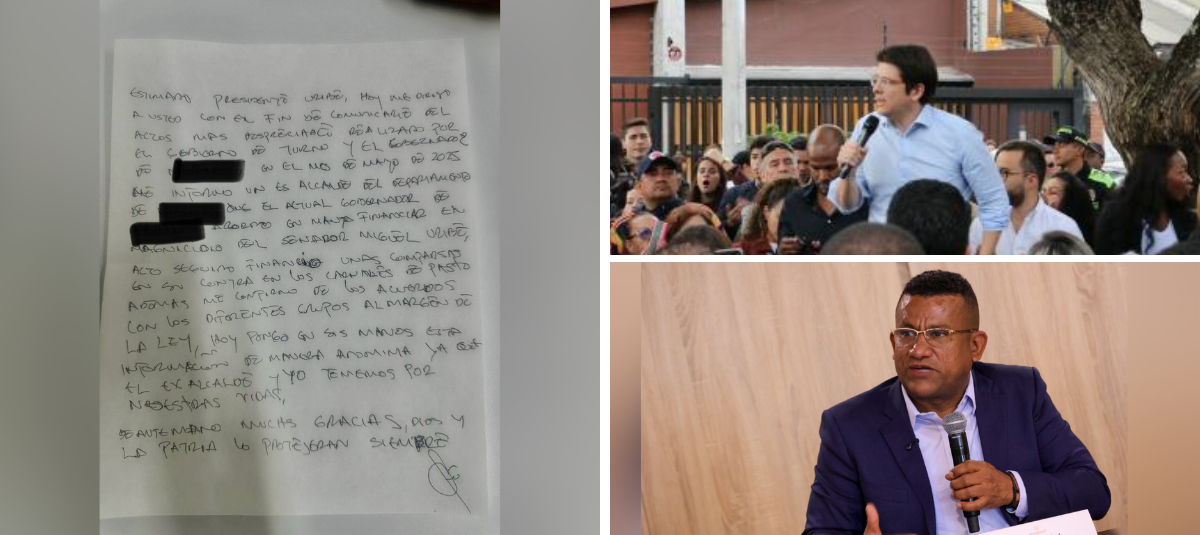 ESTIMADO PRESIDENTE URIBE, HOY ME DIRIJO
A USTED CON EL FIN DE COMUNICARLE DEL
ACTOS MAS DESPRECIABLE REALIZADO POR
EL GOBIERNO DE TURNO Y EL GOBERNADOR
DE EN EL MES DE MAYO DE 2025
ME INFORMO UN EX ALCALDE DEL DEPARTAMENTO
DE QUE EL ACTUAL GOBERNADOR DE
FINANCIAR EN
MAGNICIDIO DEL SENADOR MIGUEL URIBE,
ACTO SEGUIDO FINANCIO UNAS COMPARSAS
EN SU CONTRA EN LOS CARNAVALES DE PASTO
ADEMAS ME CONFIRMO DE LOS ACUERDOS
CON LOS DIFERENTES GRUPOS AL MARGEN DE
LA LEY, HOY PONGO EN SUS MANOS ESTA
INFORMACION DE MANERA ANONIMA YA QUE
EL EX ALCALDE Y YO TEMEMOS POR
NUESTRAS VIDAS,
DE ANTEMANO MUCHAS GRACIAS, DIOS Y
LA PATRIA LO PROTEJERAN SIEMPRE